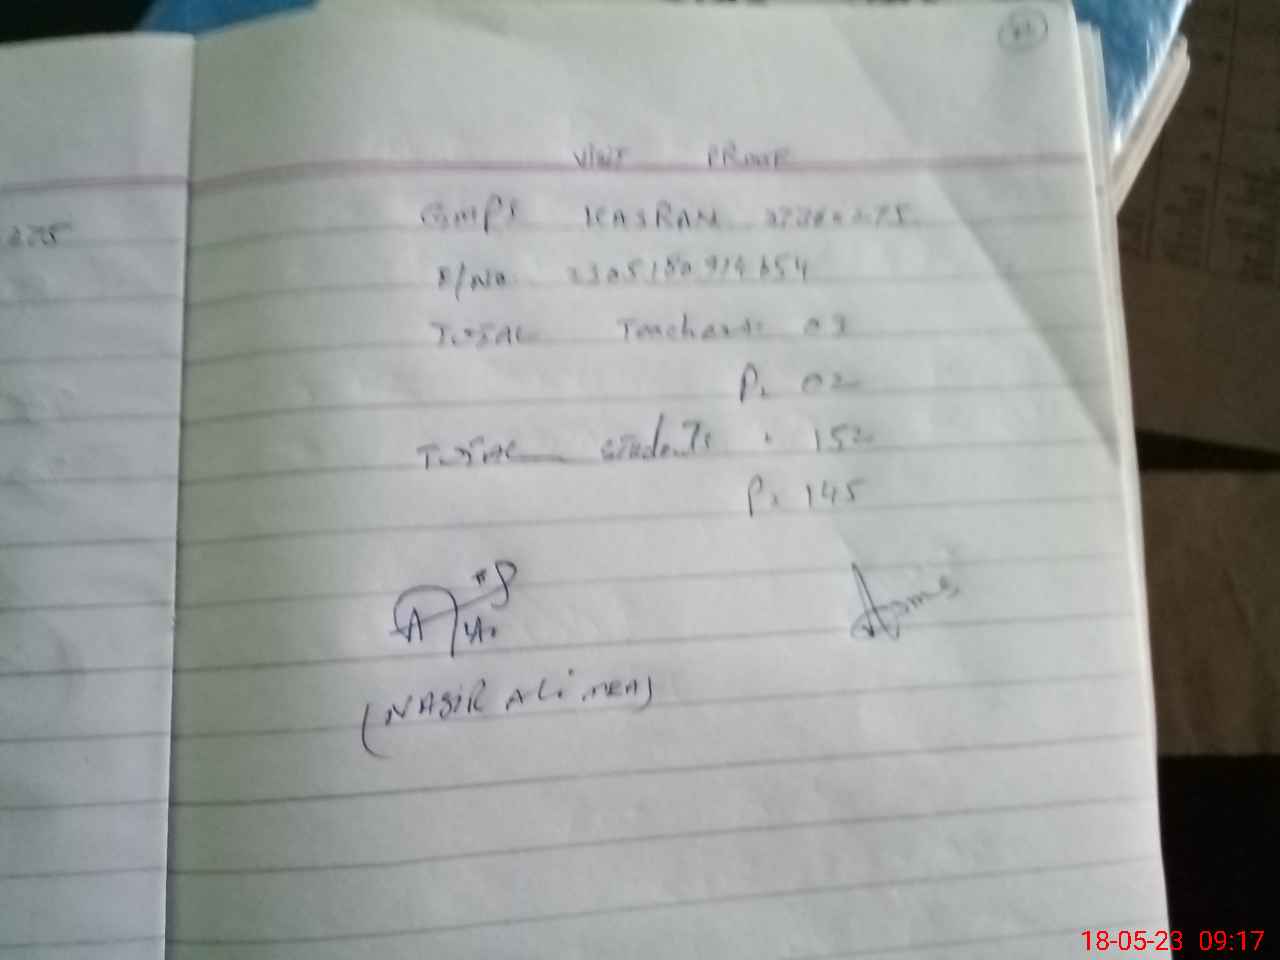 275
VISIT PROOF
GMPS KASRAN 37230275
S/NO 2305180914654
TOTAL Teachers: 03
P: 02
TOTAL Students: 152
P: 145
(NASIR ALI MEA)
18-05-23 09:17